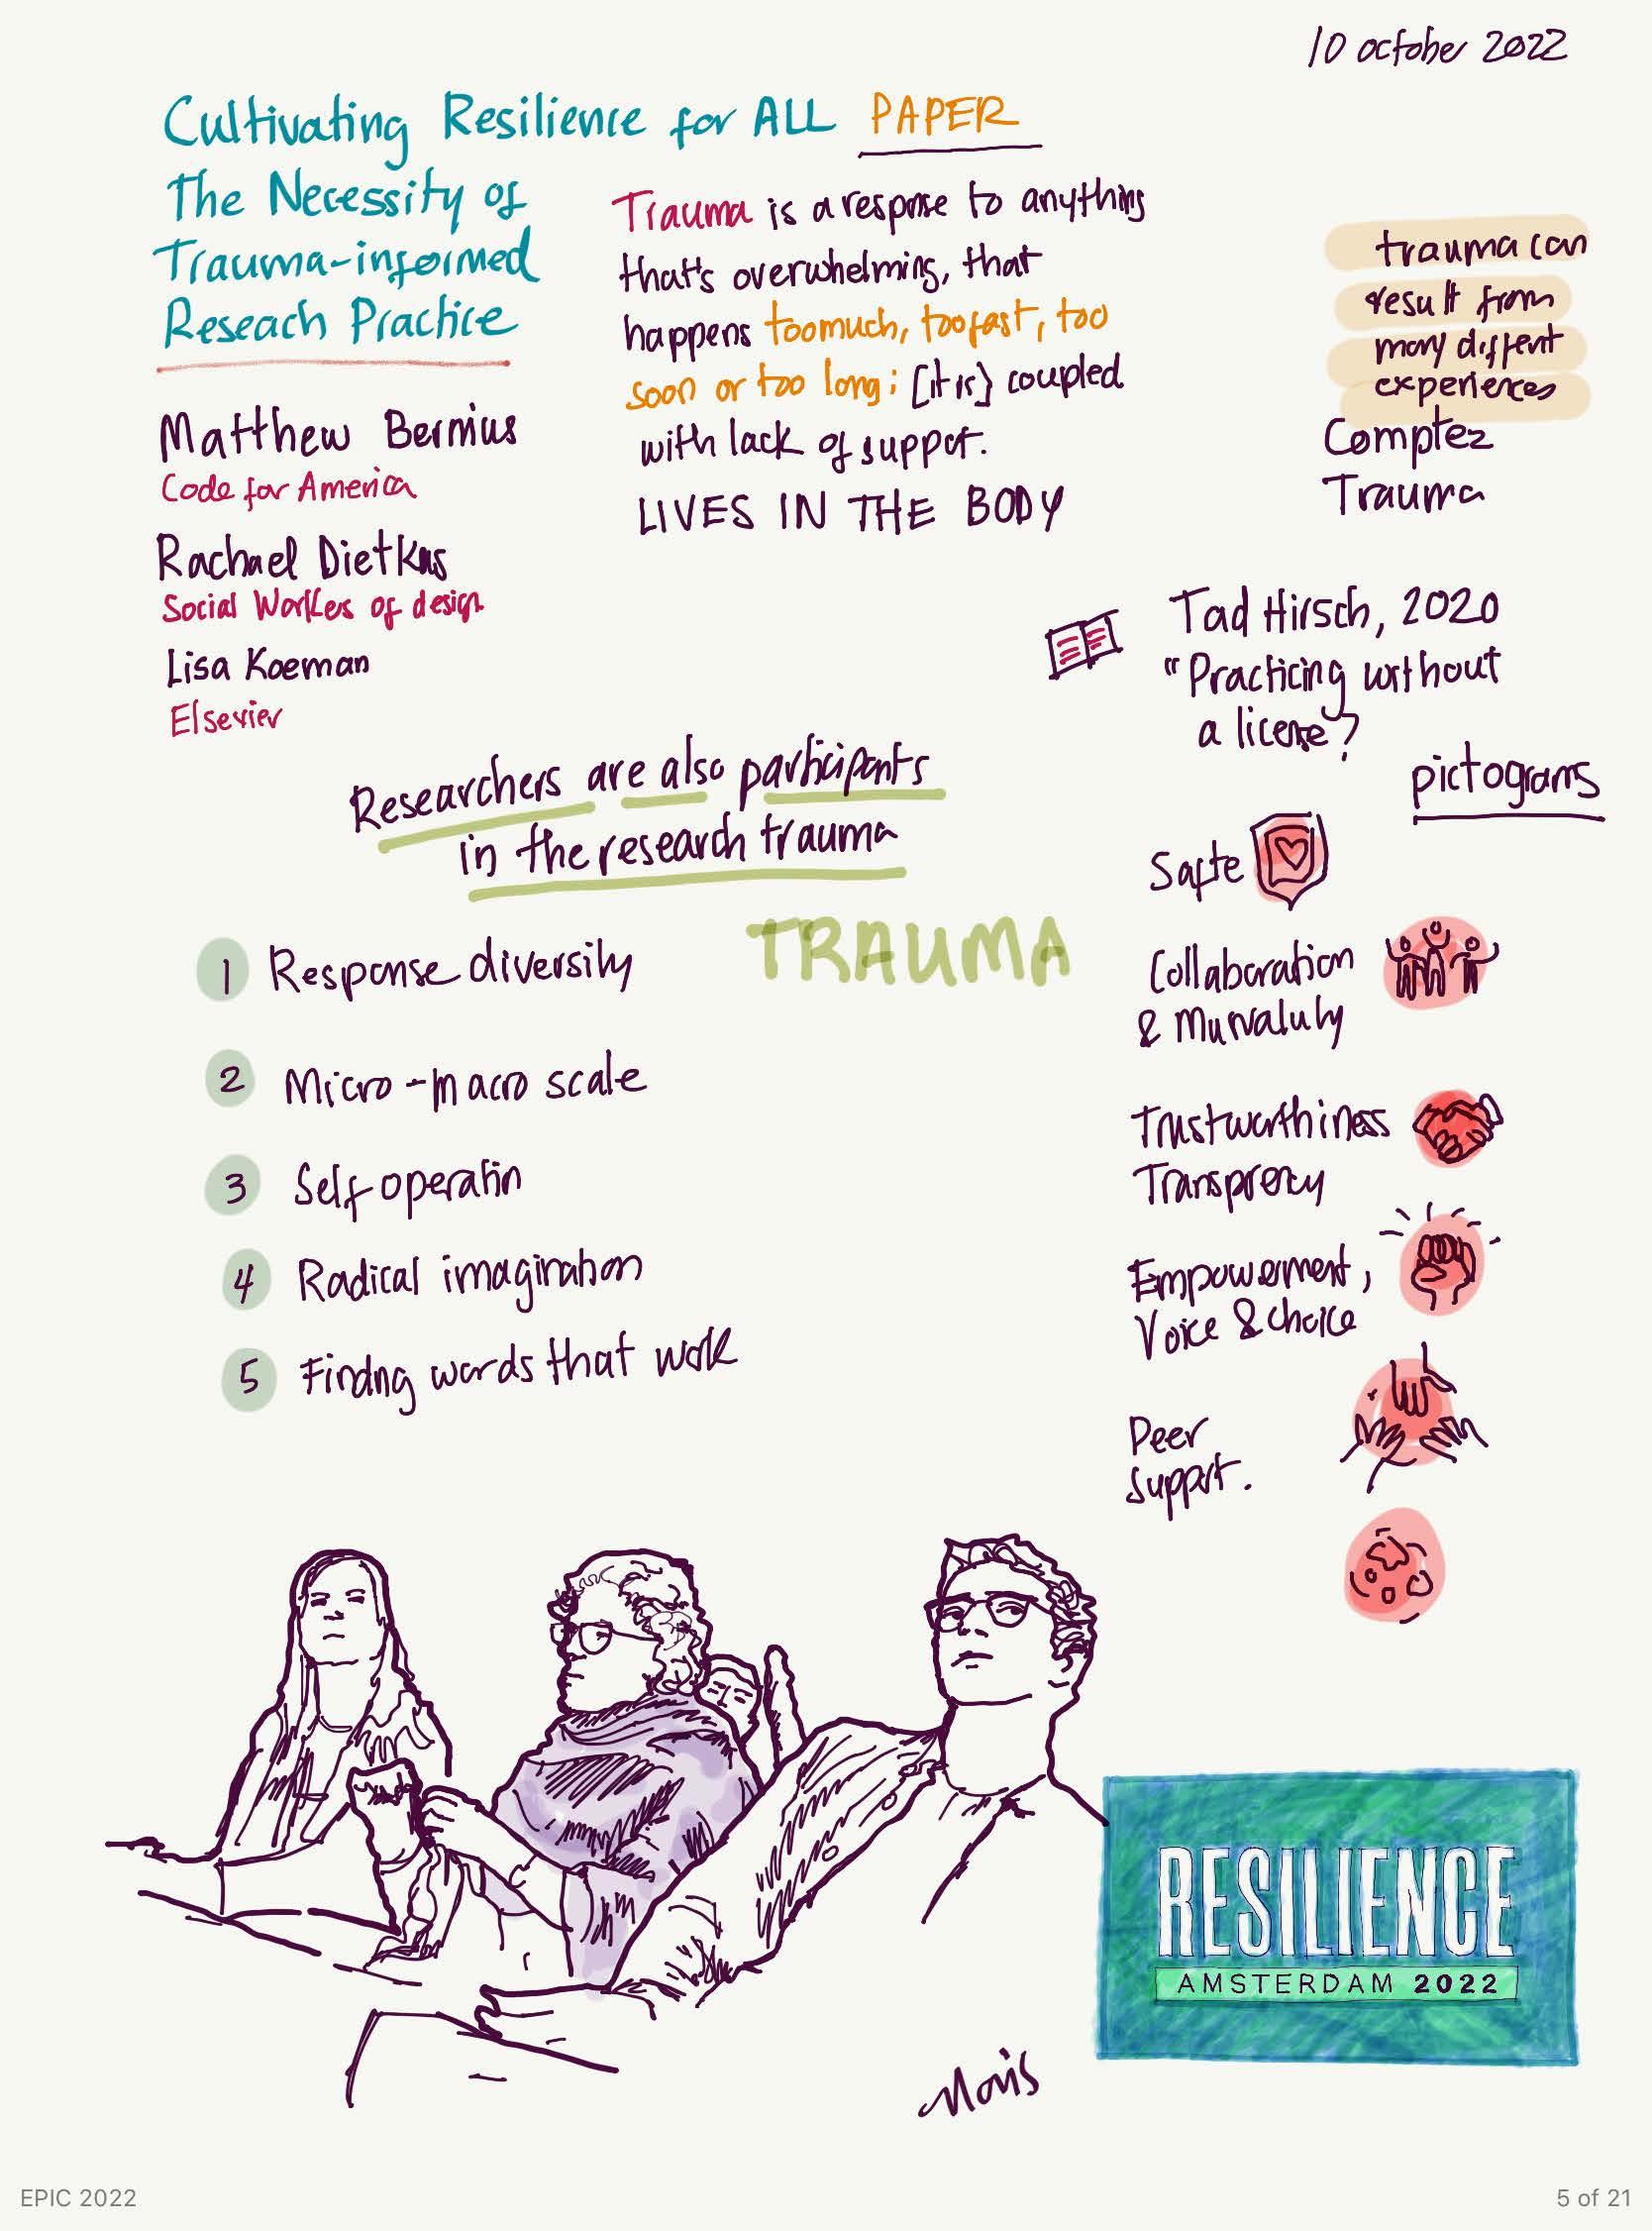 10 october 2022
Cultivating Resilience for ALL PAPER
The Necessity of
Trauma-informed
Reseach Practice
Matthew Bernius
Code for America
Rachael Dietkus
Social Workers of design
Lisa Koeman
Elsevier
Trauma is a response to anything
that's overwhelming, that
happens too much, too fast, too
soon or too long; [it is] coupled
with lack of support.
LIVES IN THE BODY
trauma can
result from
many different
experiences
Complez
Trauma
Tad Hirsch, 2020
"Practicing without
a license?
pictograms
Researchers are also participants
in the research trauma
TRAUMA
1 Response diversity
2 Micro-macro scale
3 Self operatin
4 Radical imagination
5 Findng words that work
Safte
Collaboration
&
Trustworthiness
Transprency
Empowerment,
Voice & choice
Peer
Support.
RESILIENCE
AMSTERDAM 2022
EPIC 2022
5 of 21